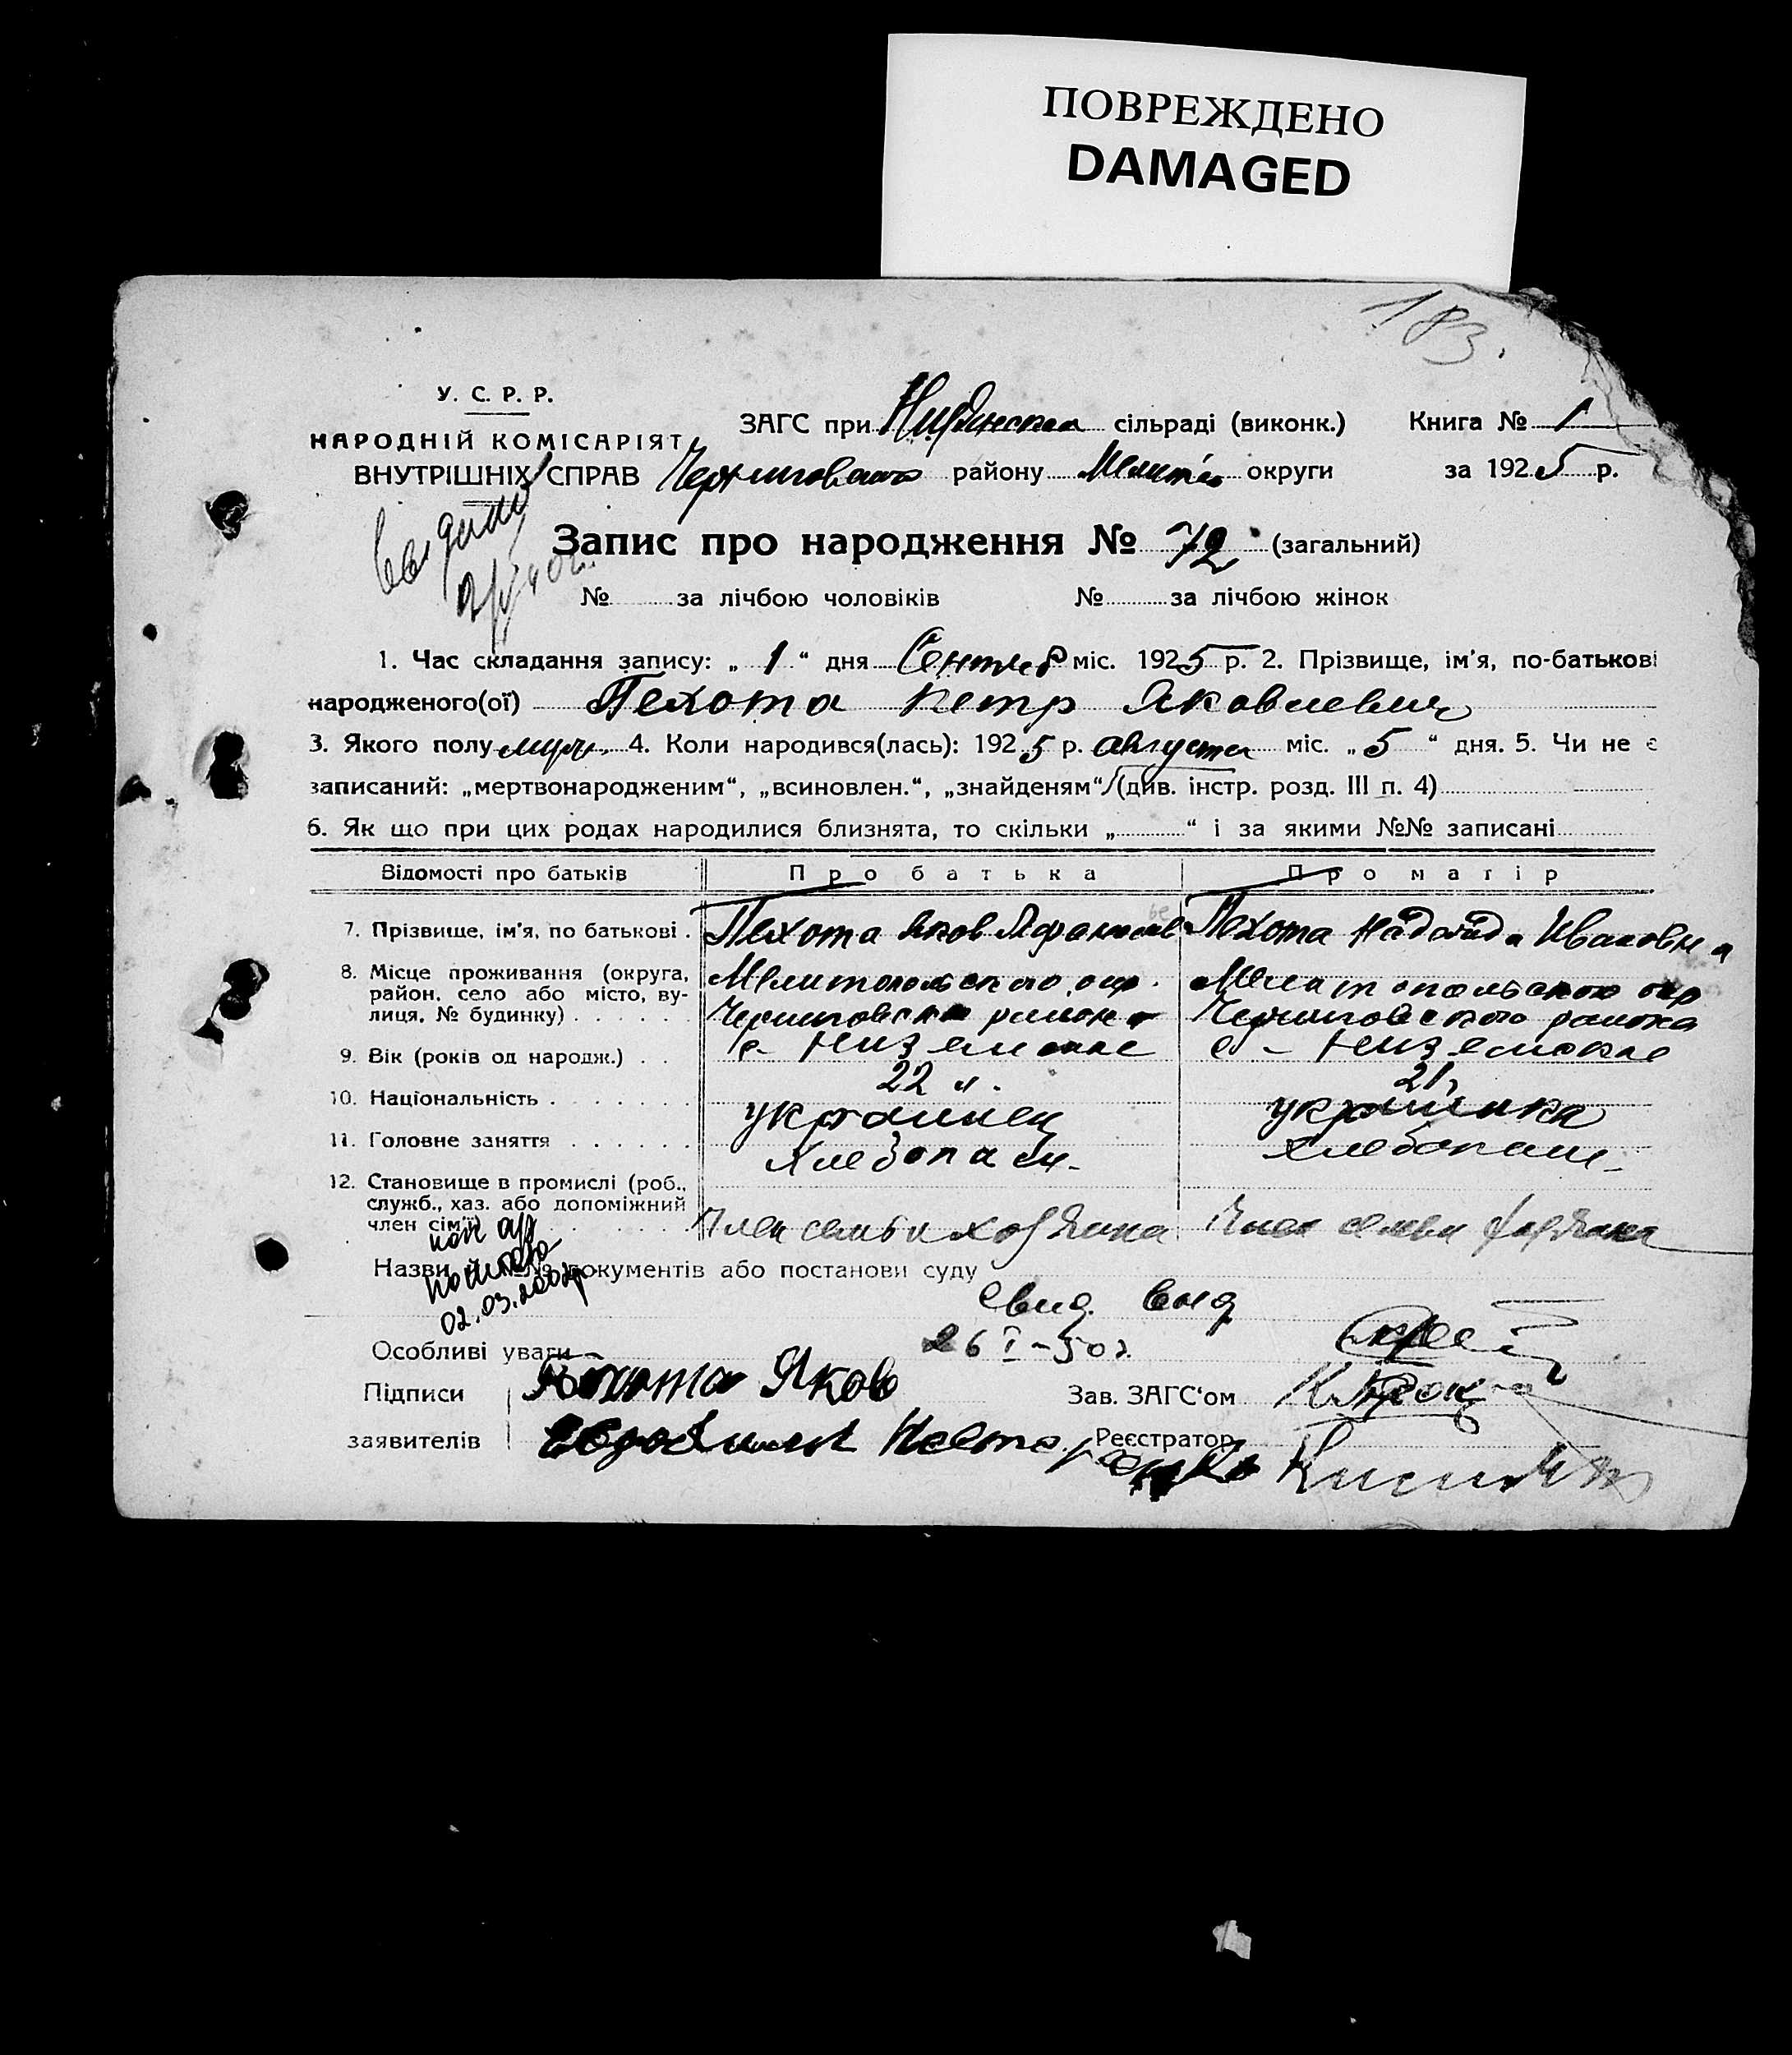 ПОВРЕЖДЕНО
DAMAGED
183.
У. С. Р. Р.
НАРОДНІЙ КОМІСАРІЯТ
ВНУТРІШНІХ СПРАВ
ЗАГС при сільраді (виконк.) Книга № 1
району округи за 1925 р.
Запис про народження № 72 (загальний)
№ за лічбою чоловіків № за лічбою жінок
1. Час складання запису: „ 1 “ дня міс. 1925 р. 2. Прізвище, ім'я, по-батькові
народженого(ої) Пехота Петр Яковлевич
3. Якого полу муж. 4. Коли народився(лась): 1925 р. августа міс. „ 5 “ дня. 5. Чи не є
записаний: „мертвонародженим“, „всиновлен.“, „знайденям“ (див. інстр. розд. III п. 4)
6. Як що при цих родах народилися близнята, то скільки „ “ і за якими №№ записані
Відомості про батьків Про батька Про матір
7. Прізвище, ім'я, по батькові . Пехота Яков Пехота Надежда Ивановна
8. Місце проживання (округа, район, село або місто, вулиця, № будинку) Мелитопольского окр. Мелитопольского окр
Черниговского района Черниговского района
9. Вік (років од народж.) 22 21
10. Національність украинец украинка
11. Головне заняття хлебопаш. хлебопаш.
12. Становище в промислі (роб.,
служб., хаз. або допоміжний
член сім'ї) Член семьи хозяина Член семьи хозяина
Назви й №№ документів або постанови суду
Свид. выд
26 I-50 г.
02.03.2002р
Особливі уваги
Підписи Пехота Яков Зав. ЗАГС'ом
заявителів Реєстратор